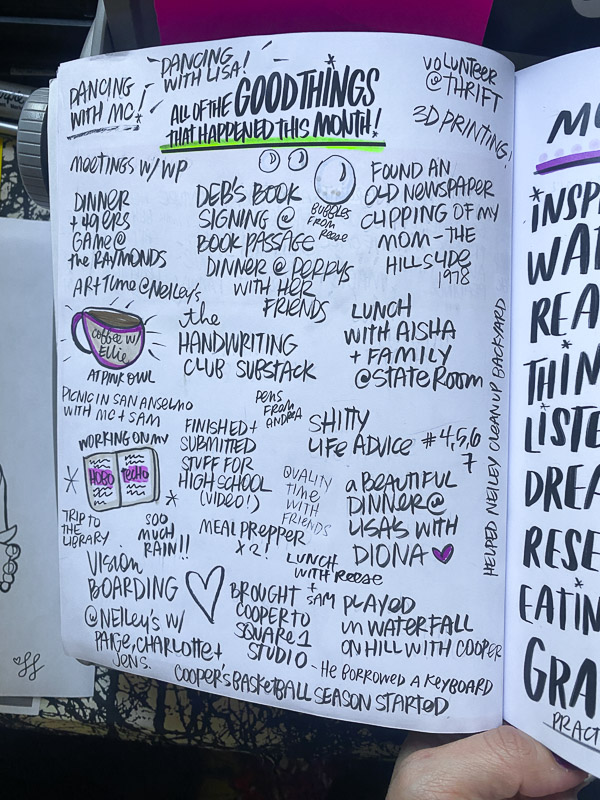 DANCING
WITH MC!
DANCING
WITH LISA!
ALL OF THE GOOD THINGS
THAT HAPPENED THIS MONTH!
VOLUNTEER
@ THRIFT
3D PRINTING!
MEETINGS W/ WP
DINNER
+ 49ERS
GAME @
the RAYMONDS
DEB'S BOOK
SIGNING @
BOOK PASSAGE
DINNER @ PERRYS
WITH HER
FRIENDS
BUBBLES
FROM
REESE
FOUND AN
OLD NEWSPAPER
CLIPPING OF MY
MOM - THE
HILLSYDE
1978
ART TIME @ NEILEY'S
COFFEE W/
Ellie
AT PINK OWL
the
HANDWRITING
CLUB SUBSTACK
LUNCH
WITH AISHA
+ FAMILY
@ STATE ROOM
HELPED NEILEY CLEAN UP BACKYARD
PICNIC IN SAN ANSELMO
WITH MC + SAM
PENS
FROM
ANDREA
WORKING ON MY
HOBO TECHO
FINISHED +
SUBMITTED
STUFF FOR
HIGH SCHOOL
(VIDEO!)
SHITTY
LIFE ADVICE #4,5,6
7
QUALITY
TIME
WITH
FRIENDS
a BEAUTIFUL
DINNER @
LISA'S WITH
DIONA
TRIP TO
THE
LIBRARY
SOO
MUCH
RAIN!!
MEAL PREPPER
X 2!
LUNCH
WITH REESE
+
SAM
VISION
BOARDING
@ NEILEY'S W/
PAIGE, CHARLOTTE +
JENS.
BROUGHT
COOPER TO
SQUARE 1
STUDIO - HE BORROWED A KEYBOARD
PLAYED
IN WATERFALL
ON HILL WITH COOPER
COOPER'S BASKETBALL SEASON STARTED
INSP
WAT
REA
THIN
LISTE
DREA
RESE
EATIN
GRA
PRACT